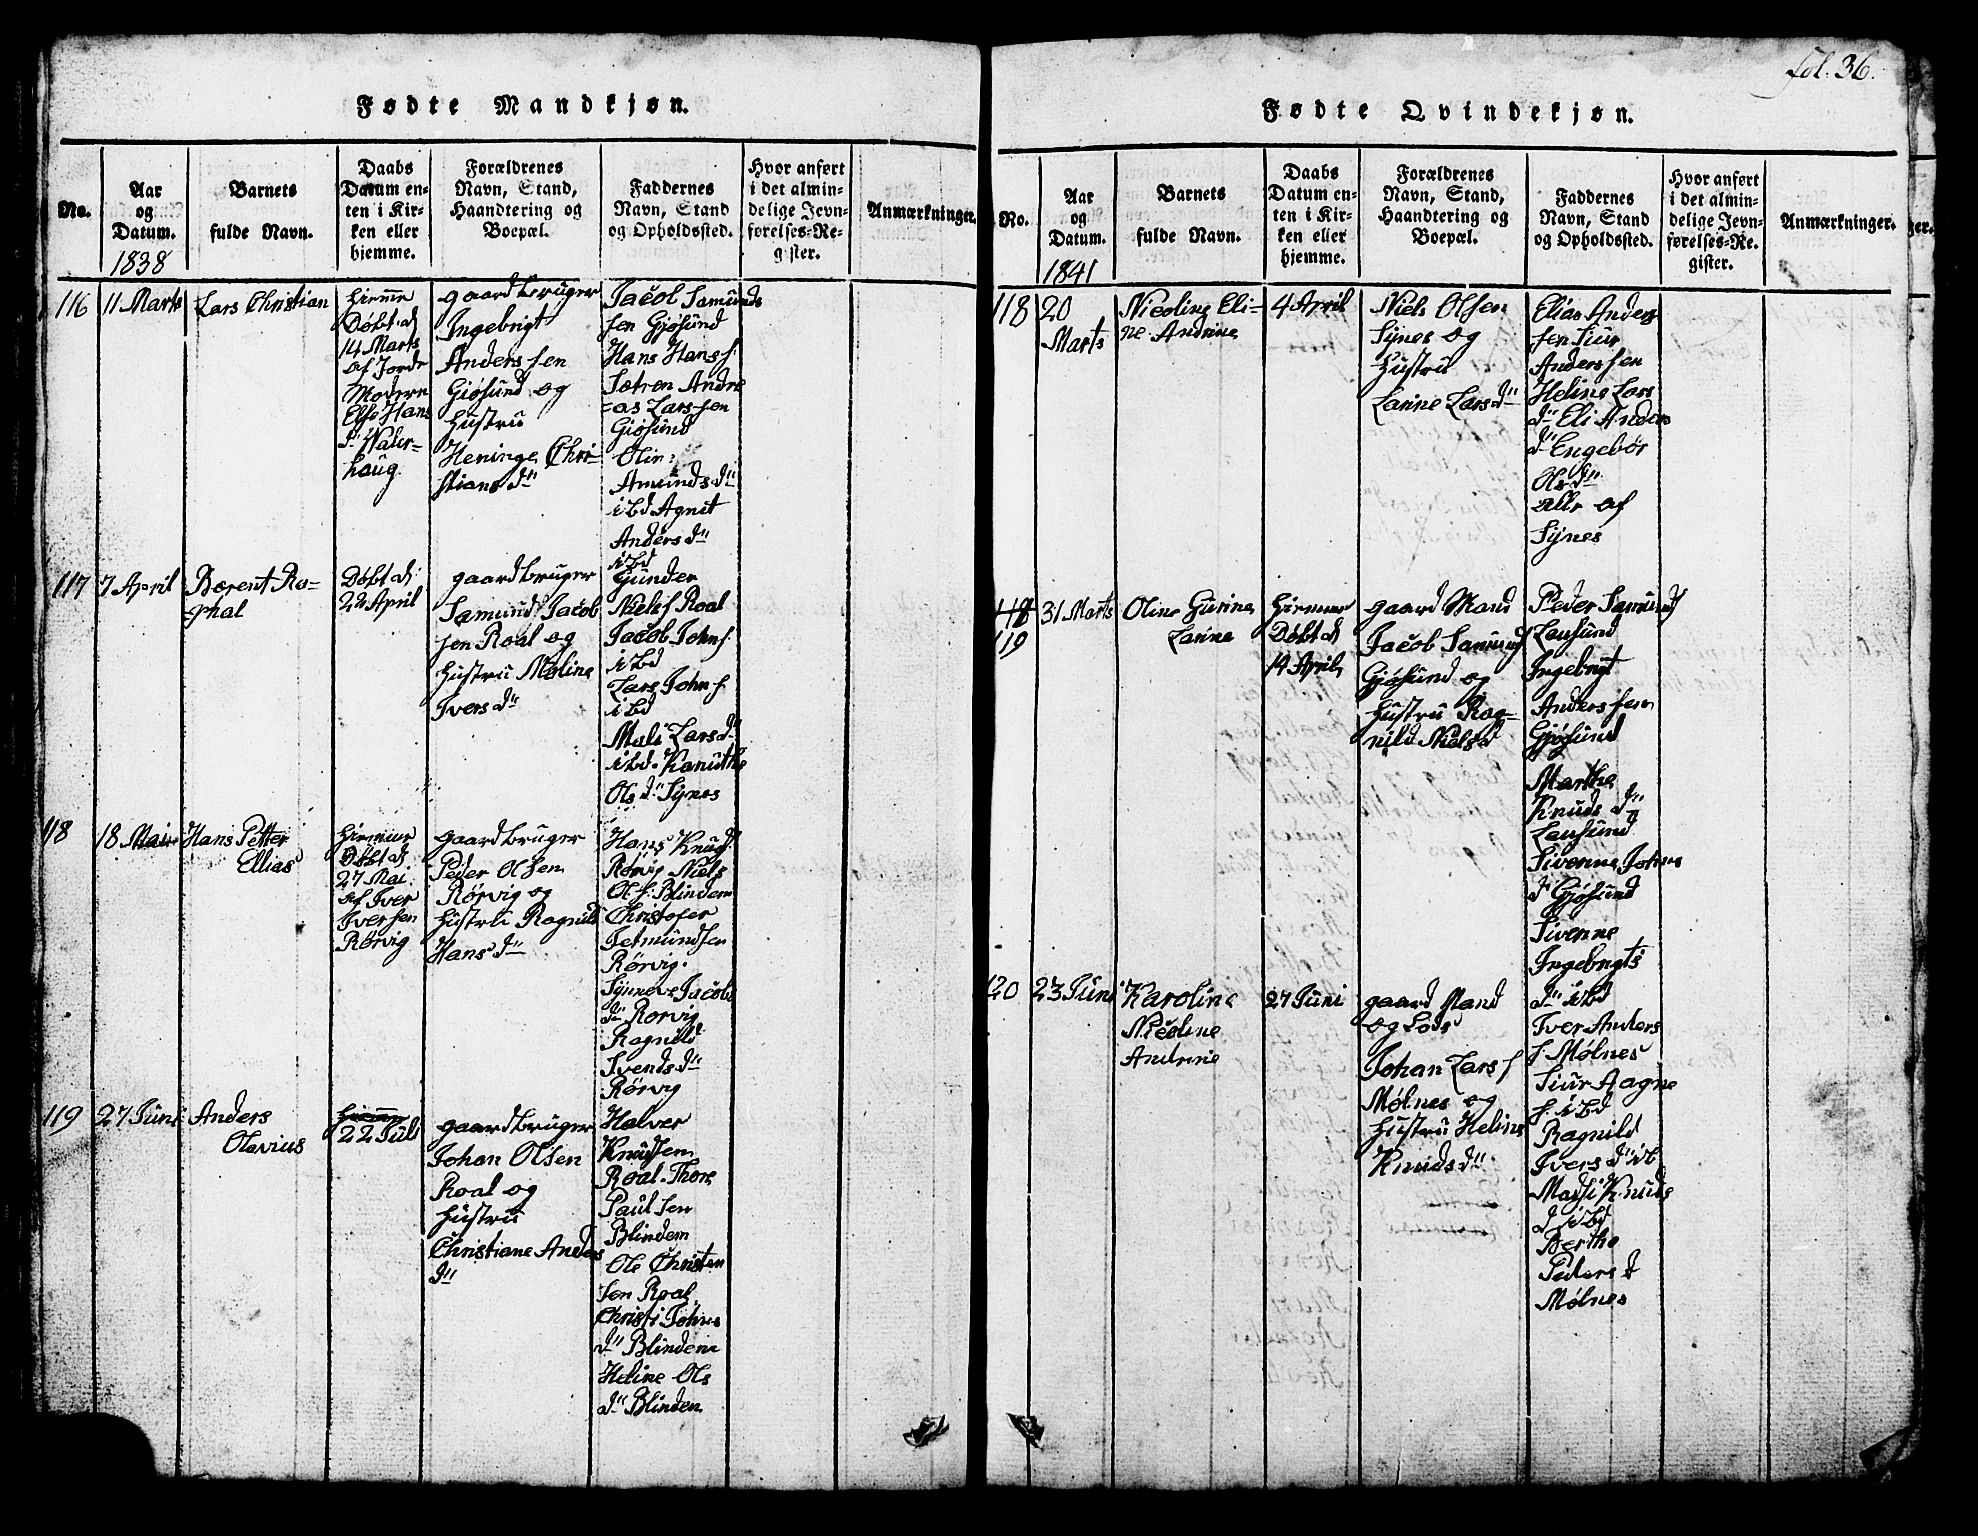 fol. 36.
Fødte Mandkjøn.
No.
Aar
og
Datum.
1838
Barnets
fulde Navn.
Daabs
Datum en-
ten i Kir-
ken eller
hjemme.
Forældrenes
Navn, Stand,
Haandtering og
Boepæl.
Faddernes
Navn, Stand
og Opholdssted.
Hvor anført
i det almin-
delige Jevn-
førelses-Re-
gister.
Anmærkninger.
116
11 Marts
Lars Christian
hiemme
Døbt d
14 Marts
af Jorde
Moderen
Else Hans
d. Valer-
haug.
gaardbruger
Ingebrigt
Andersen
Giøsund og
Hustru
Heninge Chri-
stians dtr
Jacob Samunds
sen Gjøsund
Hans Hans s.
Sætren Andre
=as Larssen
Giøsund
Olin:
Amunds dtr
ibd Agnit
Anders dtr
ibd
117
7 April
Bærent Ro-
phal
Døbt d
22 April
gaardbruger
Samund Jacob
sen Roal og
Hustru Moline
Ivers dtr
Gunder
Niels s Roal
Jacob John s.
ibd
Lars John s
ibd
Mali Lars d.
ibd. Kanuthe
Ols dtr Synes
118
18 Mai
Hans Petter
Ellias
hiemme
Døbt d
27 Mai
af Iver
Iversen
Rørvig
gaardbruger
Peder Olsen
Rørvig og
Hustru Ragnild
Hans dtr
Hans Knud s.
Rørvig Niels
Ol. s. Blindem
Christofer
Jetmundsen
Rørvig.
Synneve Jacobs
dtr Rørvig
Ragnild
Svends dtr
Rørvig
119
27 Juni
Anders
Olavius
hiemme
22 Juli
gaardbruger
Johan Olsen
Roal og
Hustru
Christiane Anders
dtr
Halver
Knudsen
Roal. Thore
Paulsen
Blindem
Ole Christen
sen Roal
Christi Johns
dtr Blindem
Heline Ols
dtr Blindem
Fødte Qvindekjøn.
No.
Aar
og
Datum.
1841
Barnets
fulde Navn.
Daabs
Datum en-
ten i Kir-
ken eller
hjemme.
Forældrenes
Navn, Stand,
Haandtering og
Boepæl.
Faddernes
Navn, Stand
og Opholdssted.
Hvor anført
i det almin-
delige Jevn-
førelses-Re-
gister.
Anmærkninger.
118
20
Marts
Nicoline Eli-
ne Andrine
4 April
Niels Olsen
Synes og
Hustru
Larine Lars dtr
Elias Anders
sen Siur
Anderssen
Heline Lars
dtr Eli Anders
dtr Engebør
Ols dtr
alle af
Synes
118
119
31 Marts
Oline Gurine
Larine
hiemme
Døbt d
14 April
gaard Mand
Jacob Samund s
Gjøsund og
Hustru Rag-
nild Niels d
Peder Samund s
Lausund
Ingebrigt
Anderssen
Gjøsund
Marthe
Knuds dtr
Lausund
Sivenne Johns
d Gjøsund
Sivenne
Ingebrigts
dtr ibd
120
23 Juni
Karoline
Nicoline
Andrine
27 Juni
gaard Mand
og Lods
Johan Lars s
Mølnes og
Hustru Heline
Knuds dtr
Iver Anders
s. Mølnes
Siur Aagne
s. ibd
Ragnild
Ivers dtr ib
Mathi Knuds
d ibd
Berthe
Peders d
Mølnes